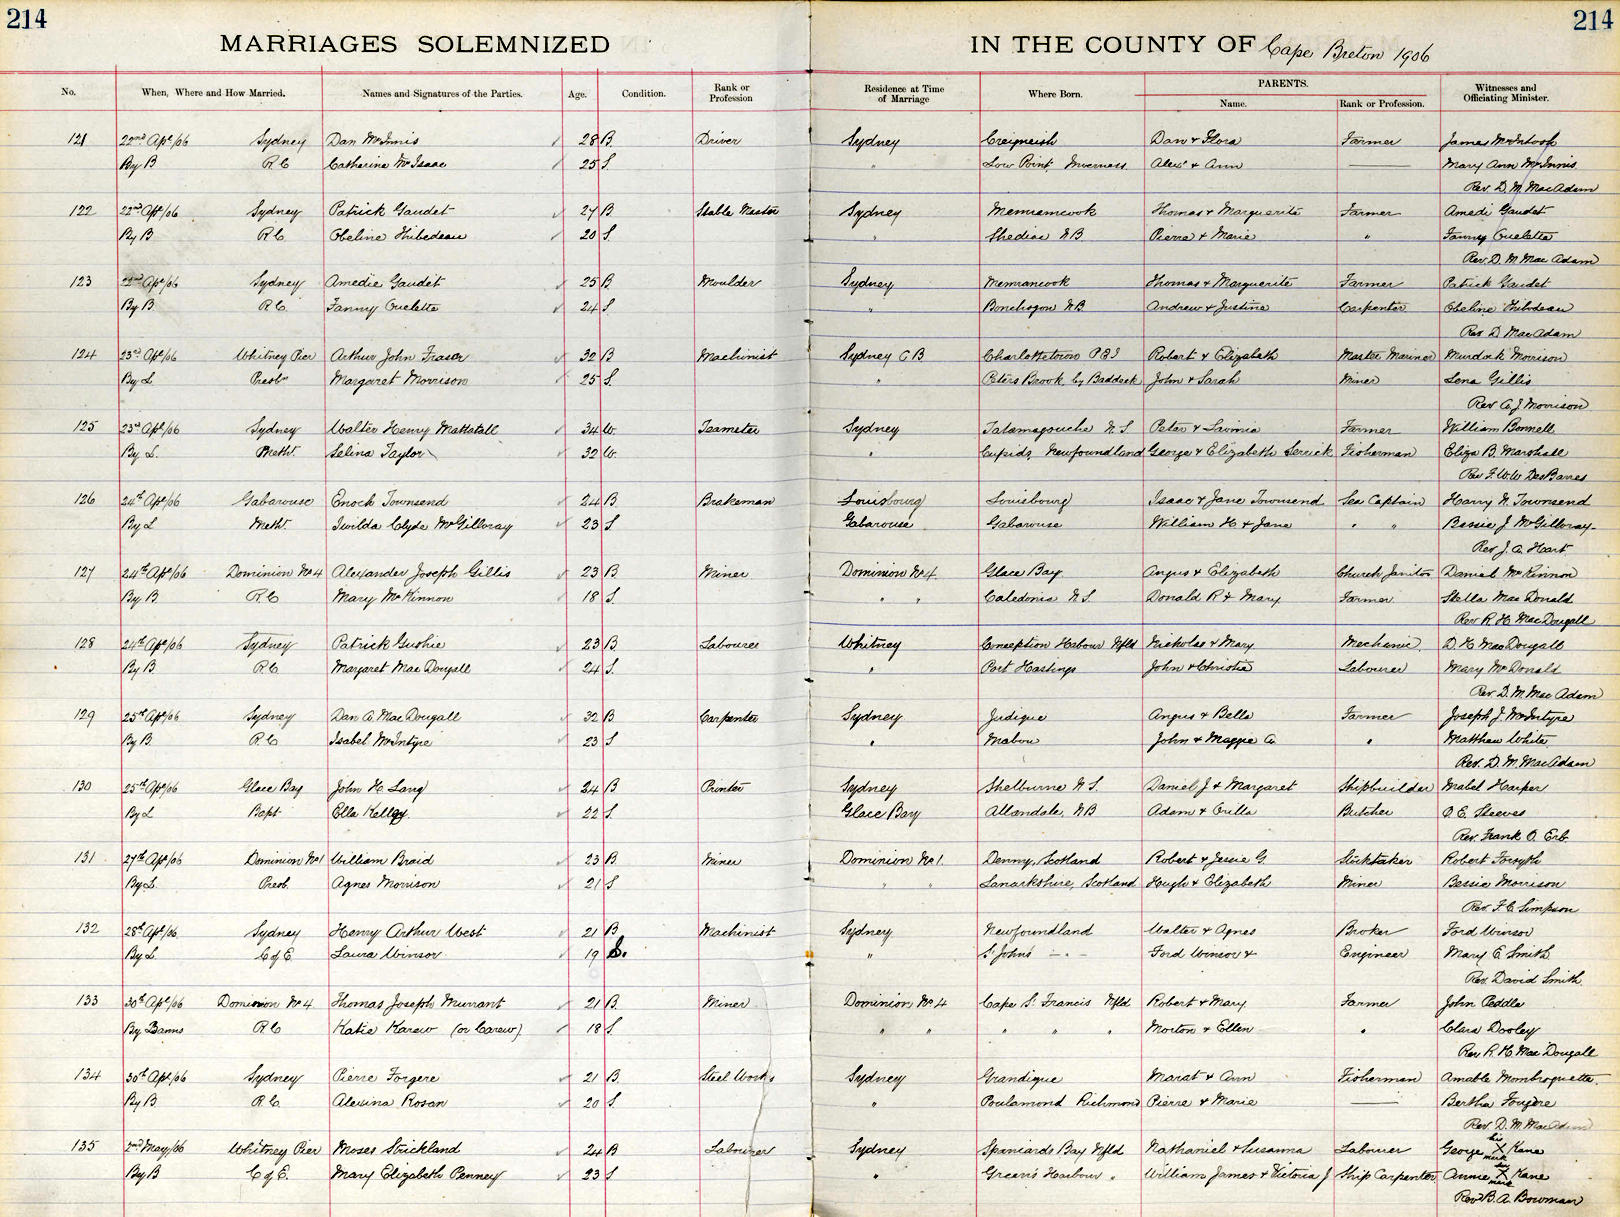 214 214
MARRIAGES SOLEMNIZED IN THE COUNTY OF Cape Breton 1906
No. When, Where and How Married. Names and Signatures of the Parties. Age. Condition. Rank or Profession Residence at Time of Marriage Where Born. PARENTS. Name. Rank or Profession. Witnesses and Officiating Minister.
121 22nd Apl/06 Sydney Dan McInnis 28 B Driver Sydney Creignish Dan & Flora Farmer James McIntosh
By B R C Catherine McIsaac 25 S. " Low Point, Inverness Alexr & Ann Mary Ann McInnis
Rev. D. M. MacAdam
122 22nd Apl/06 Sydney Patrick Gaudet 27 B Stable Master Sydney Memramcook Thomas & Marguerite Farmer Amedi Gaudet
By B R C. Obeline Thibedeau 20 S. " Shediac N.B. Pierre & Marie " Fanny Ouelette
Rev. D. M. MacAdam
123 22nd Apl/06 Sydney Amedie Gaudet 25 B Moulder Sydney Memramcook Thomas & Marguerite Farmer Patrick Gaudet
By B. R C. Fanny Ouelette 24 S " N.B. Andrew & Justine Carpenter Obeline Thibodeau
Rev. D MacAdam
124 23rd Apl/06 Whitney Pier Arthur John Fraser 32 B Machinist Sydney C B Charlottetown P.E.I Robert & Elizabeth Master Mariner Murdock Morrison
By L Presbn Margaret Morrison 25 S. " Peters Brook by Baddeck John & Sarah Miner Lena Gillis
Rev A. J. Morrison
125 23rd Apl/06 Sydney Walter Henry Mattatall 34 W. Teamster Sydney Tatamagouche N.S. Peter & Lavinia Farmer William Bonnell
By L. Meth. Selina Taylor 32 W. " Cupids, Newfoundland George & Elizabeth Fisherman Eliza B. Marshall
Rev F. W. W. DesBarres
126 24th Apl/06 Gabarouse Enock Townsend 24 B Brakeman Louisbourg Louisbourg Isaac & Jane Townsend Sea Captain Harry N. Townsend
By L Meth. Twilda Clyde McGillvray 23 S Gabarouse Gabarouse William H. & Jane " " Bessie J. McGillvray
Rev J. A. Hart
127 24th Apl/06 Dominion No 4 Alexander Joseph Gillis 23 B Miner Dominion No 4. Glace Bay Angus & Elizabeth Church Janitor Daniel McKinnon
By B. R C Mary McKinnon 18 S. " " Caledonia N.S. Donald R & Mary Farmer Stella MacDonald
Rev R. H. MacDougall
128 24th Apl/06 Sydney Patrick Gushie 23 B Labourer Whitney Conception Habour Nfld Nicholas & Mary Mechanic D. H MacDougall
By B. R C Margaret MacDougall 24 S. " Port Hastings John & Christie Labourer Mary McDonald
Rev D. M. MacAdam
129 25th Apl/06 Sydney Dan A. MacDougall 32 B Carpenter Sydney Judique Angus & Bella Farmer Joseph J. McIntyre
By B. R. C Isabel McIntyre 23 S " Mabou John & Maggie A. " Matthew White
Rev. D. M. MacAdam
130 25th Apl/06 Glace Bay John H. Lang 24 B Printer Sydney Shelburne N.S. Daniel J & Margaret Shipbuilder Mabel Harper
By L Bapt Ella Kelley. 22 S. Glace Bay Allandale, N.B Adam & Butcher O. E. Steeves
Rev. Frank O. Erb.
131 27th Apl/06 Dominion No 1 William Braid 23 B. Miner Dominion No 1. Denny, Scotland Robert & Jessie G. Robert Forsyth
By L. Presb. Agnes Morrison 21 S " " Lanarkshire, Scotland Hugh & Elizabeth Miner Bessie Morrison
Rev. F. C. Simpson
132 28th Apl/06. Sydney Henry Arthur West 21 B Machinist Sydney Newfoundland Walter & Agnes Broker Ford Winsor
By L. C of E. Laura Winsor 19 S. " St Johns " Ford Winsor & Engineer Mary E. Smith
Rev. David Smith.
133 30th Apl/06 Dominion No 4 Thomas Joseph Murrant 21 B. Miner Dominion No 4 Cape St. Francis Nfld Robert & Mary Farmer John Peddle
By Banns R C Katie Karew (or Carew) 18 S. " " " " " Morton & Ellen " Clara Dooley
Rev R. H. MacDougall
134 30th Apl/06 Sydney Pierre Forgere 21 B. Steel Works Sydney Grandique Marat & Ann Fisherman Amable Mombroquette.
By B. R. C. Alexina Rosan 20 S. " Poulamond Richmond Pierre & Marie Bertha Fougère
Rev. D. M. MacAdam
135 2nd May/06 Whitney Pier Moses Strickland 24 B Labourer Sydney Spaniards Bay Nfld Nathaniel & Susanna Labourer George his X mark Kane
By B C of E. Mary Elizabeth Penney 23 S " Green's Harbour " William James & Victoria J Ship Carpenter Annie her X mark Kane
Rev B. A. Bowman